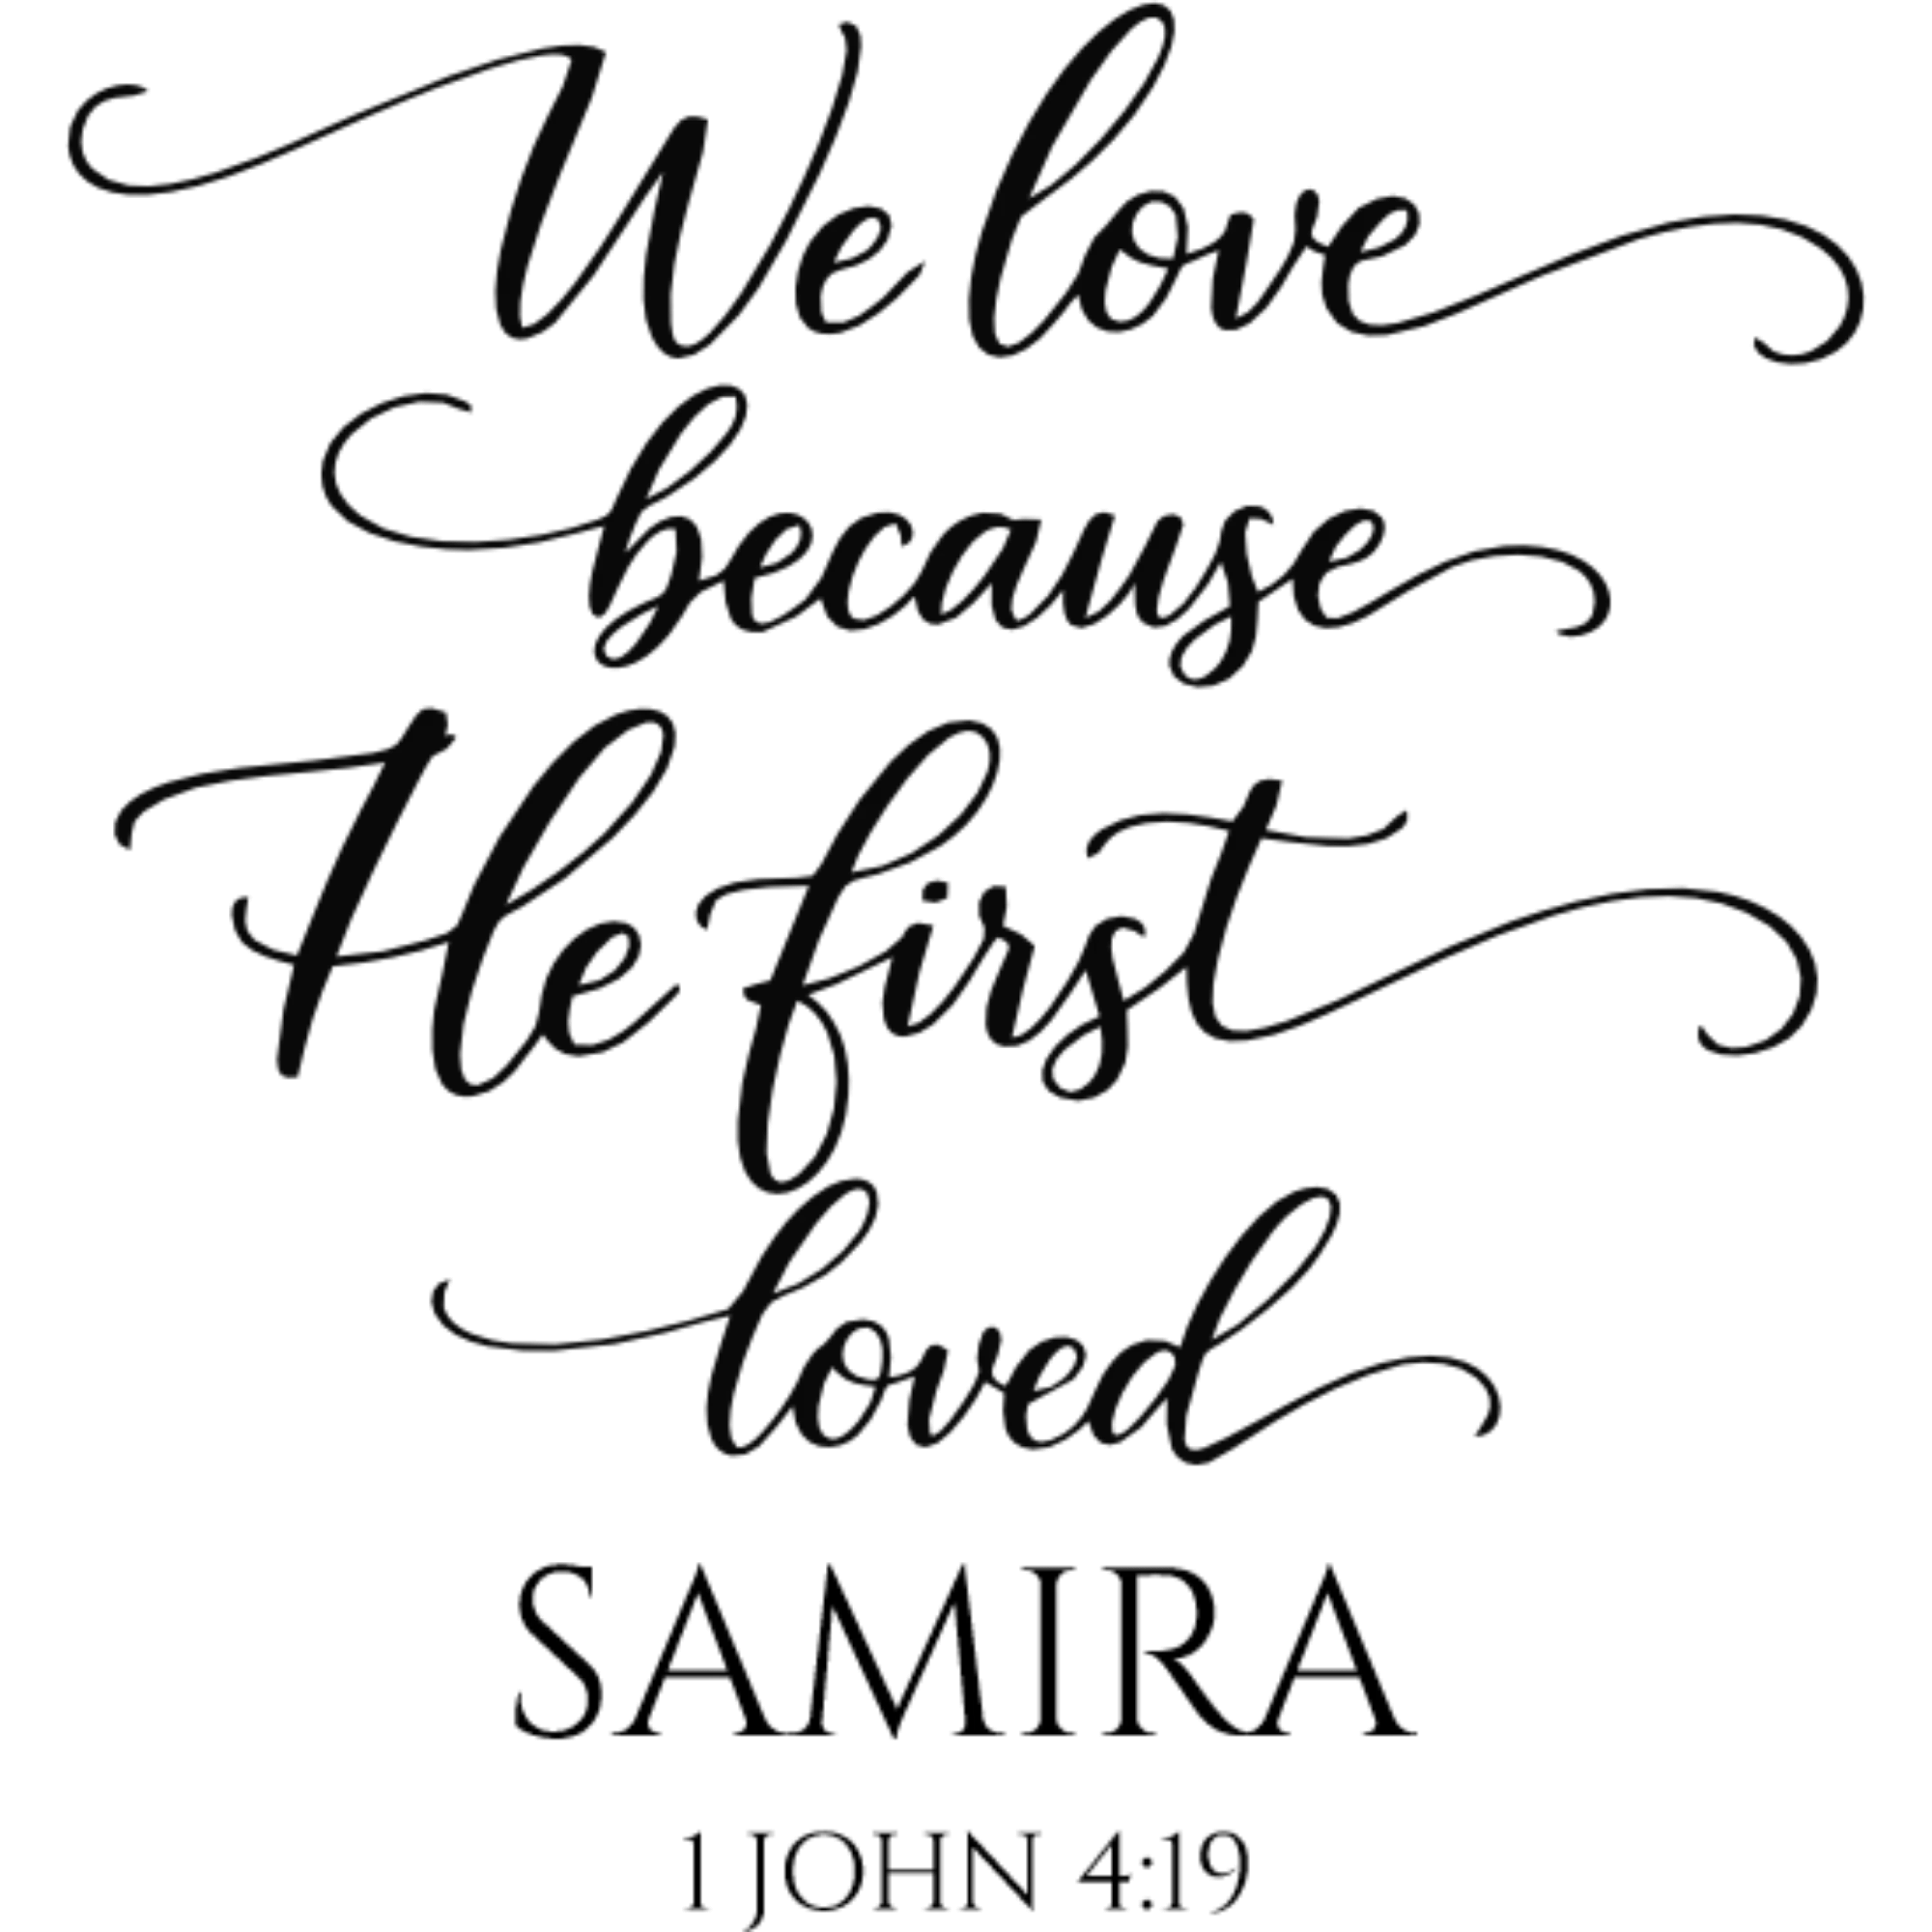 We love
because
He first
loved
SAMIRA
1 JOHN 4:19